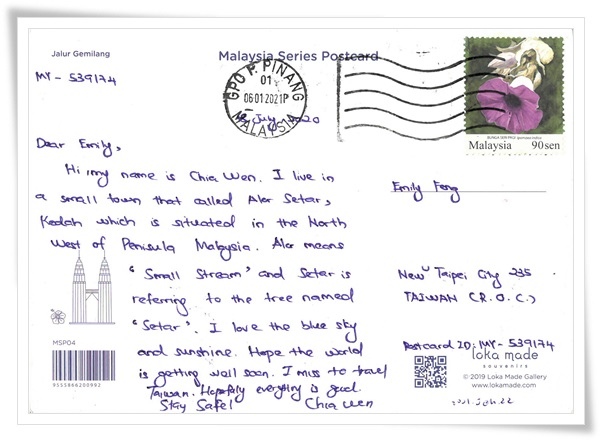 Jalur Gemilang
Malaysia Series Postcard
MY - 539174
GPO P. PINANG
01
06012021P
MALAYSIA
July 2020
BUNGA SERI PAGI
Malaysia 90sen
Dear Emily,
Hi, my name is Chia Wen. I live in
a small town that called Alor Setar,
Kedah which is situated in the North
West of Penisula Malaysia. Alor means
'Small Stream' and Setar is
referring to the tree named
'Setar'. I love the blue sky
and sunshine. Hope the world
is getting well soon. I miss to travel
Taiwan. Hopefully everything is good.
Stay Safe! Chia Wen
MSP04
9555866200992
Emily Feng
New Taipei City 235
TAIWAN (R.O.C.)
Postcard ID: MY - 539174
loka made
souvenirs
© 2019 Loka Made Gallery
www.lokamade.com
2021. Jan. 22